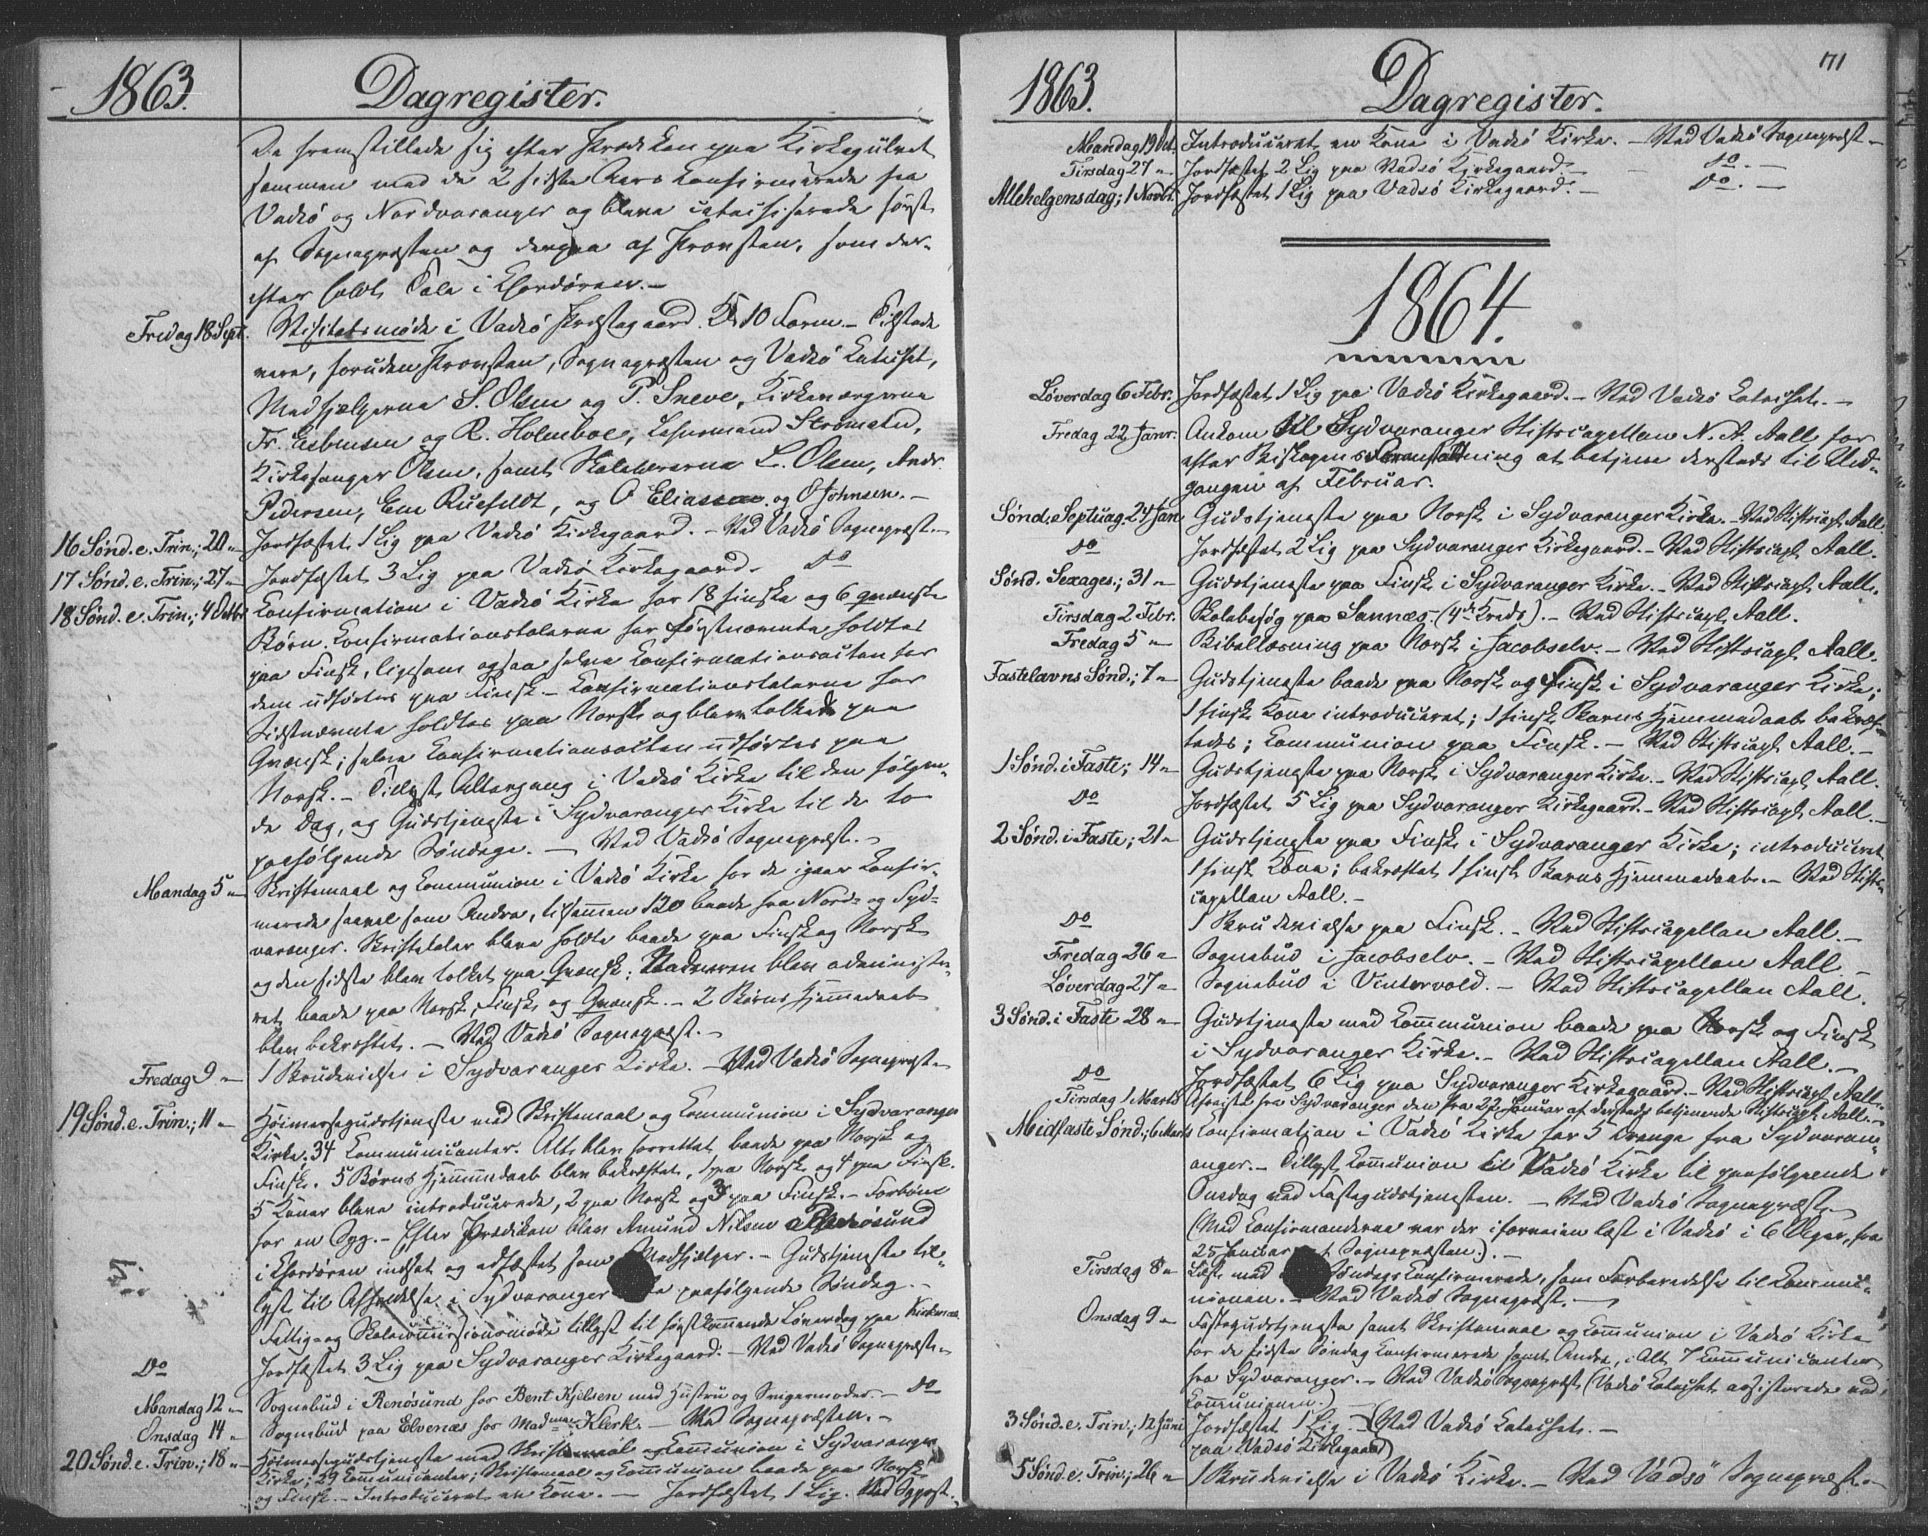 1863.
Dagregister.
De fremstillede sig efter Prædiken paa Kirkegulvet
sammen med de 2 sidste Aars Confirmerede fra
Vadsö og Nordvaranger og bleve catechiserede först
af Sognepræsten og derpaa af Provsten, som der-
efter holdt Tale i Chordören.-
Fredag 18 Sept.
Visitatsmöde i Vadsö Præstegaard Kl. 10 Form.- Tilstede
vare, foruden Provsten, Sognepræsten og Vadsö Catechet,
Medhjælperne S. Olsen og P. Sneve, Kirkeværgerne
Fr. Esbensen og R. Holmboe, Lehnsmand Strømstad,
Kirkesanger Olsen, samt Skolelærerne L. Olsen, Andr.
Pedersen, Em Ruefeldt, og O Eliassen og O Johnsen.-
16 Sönd. e. Trin.; 20 "
Jordfæstet 1 Lig paa Vadsö Kirkegaard.- Ved Vadsö Sognepræst.-
17 Sönd. e. Trin.; 27 "
Jordfæstet 3 Lig paa Vadsö Kirkegaard. Do
18 Sönd. e. Trin.; 4 Octbr
Confirmation i Vadsö Kirke for 18 finske og 6 qvænske
Börn. Confirmationstalerne for förstnævnte holdtes
paa Finsk, ligesom ogsaa selve Confirmationsacten for
dem udförtes paa Finsk.- Confirmationstalerne for
Sidstnævnte holdtes paa Norsk og bleve tolkede paa
Qvænsk; selve Confirmationsacten udförtes paa
Norsk.- Tillyst Altergang i Vadsö Kirke til den fölgen-
de Dag, og Gudstjeneste i Sydvaranger Kirke til de to
paafölgende Söndage.- Ved Vadsö Sognepræst.-
Mandag 5 "
Skriftemaal og Communion i Vadsö Kirke for de igaar Confir-
merede saavel som Andre, tilsammen 120 baade fra Nord- og Syd-
varanger. Skriftetaler bleve holdte baade paa Finsk og Norsk
og den sidste blev tolket paa Qvænsk; Nadveren blev administre-
ret baade paa Norsk, Finsk og Qvænsk.- 2 Börns Hjemmedaab
blev bekræftet.- Ved Vadsö Sognepræst.-
Fredag 9 "
1 Brudevielse i Sydvaranger Kirke.- Ved Vadsö Sognepræst.-
19 Sönd. e. Trin.; 11 "
Höimessegudstjeneste med Skriftemaal og Communion i Sydvaranger
Kirke. 34 Communicanter. Alt blev forrettet baade paa Norsk og
Finsk. 5 Börns Hjemmedaab blev bekræftet, 1 paa Norsk og 4 paa Finsk.
5 Koner bleve introducerede, 2 paa Norsk og 3 paa Finsk.- Forbön
for en Syg.- Efter Prædiken blev Amund Nilsen
i Chordören indsat og edfæstet som Medhjælper.- Gudstjeneste til-
lyst til Afholdelse i Sydvaranger paafölgende Söndag.-
Fattig- og Skolecommissionsmöde tillyst til förstkommende Löverdag paa
Do
Jordfæstet 3 Lig paa Sydvaranger Kirkegaard.- Ved Vadsö Sognepræst.-
Mandag 12 "
Sognebud i Renösund hos Bent Kjelsen med Hustru og Svigermoder.- Do
Onsdag 14 "
Sognebud paa Elvenæs hos Madme Klerk.- Ved Sognepræsten.-
20 Sönd. e. Trin.; 18 "
Höimessegudstjeneste med Skriftemaal og Communion i Sydvaranger
Kirke; 29 Communicanter; Skriftemaal og Communion baade paa Norsk
og Finsk.- Introduceret en Kone.- Jordfæstet 1 Lig. Ved
1863.
Dagregister.
171
Mandag 19 Oct.
Introduceret en Kone i Vadsö Kirke.- Ved Vadsö Sognepræst.-
Tirsdag 27 "
Jordfæstet 2 Lig paa Vadsö Kirkegaard.- Do.-
Allehelgensdag; 1 Novbr.
Jordfæstet 1 Lig paa Vadsö Kirkegaard.- Do.-
1864.
Löverdag 6 Febr.
Jordfæstet 1 Lig paa Vadsö Kirkegaard.- Ved Vadsö Catechet.-
Fredag 22 Janr.
Ankom til Sydvaranger Stiftscapellan N. A. Aall for
efter Biskopens Foranstaltning at betjene dersteds til Ud-
gangen af Februar.
Sönd. Septuag. 24 Jan
Gudstjeneste paa Norsk i Sydvaranger Kirke.- Ved Stiftscapl. Aall.
Do
Jordfæstet 2 Lig paa Sydvaranger Kirkegaard.- Ved Stiftscapl. Aall.
Sönd. Sexages.; 31 "
Gudstjeneste paa Finsk i Sydvaranger Kirke.- Ved Stiftscapl. Aall.
Tirsdag 2 Febr.
Skolebesög paa Sannæs. (4de Kreds).- Ved Stiftscapl. Aall.
Fredag 5 "
Bibellæsning paa Norsk i Jacobselv.- Ved Stiftscapl. Aall.
Fastelavns Sönd.; 7 "
Gudstjeneste baade paa Norsk og Finsk i Sydvaranger Kirke;
1 finsk Kone introduceret; 1 finsk Barns Hjemmedaab bekræf-
tedes; Communion paa Finsk.- Ved Stiftscapl. Aall.-
1 Sönd. i Faste; 14 "
Gudstjeneste paa Norsk i Sydvaranger Kirke.- Ved Stiftscapl. Aall.
Do
Jordfæstet 5 Lig paa Sydvaranger Kirkegaard.- Ved Stiftscapl. Aall.-
2 Sönd. i Faste; 21 "
Gudstjeneste paa Finsk i Sydvaranger Kirke; introduceret
1 finsk Kone; bekræftet 1 finsk Barns Hjemmedaab.- Ved Stifts-
capellan Aall.-
Do
1 Brudevielse paa Finsk.- Ved Stiftscapellan Aall.-
Fredag 26 "
Sognebud i Jacobselv.- Ved Stiftscapellan Aall.-
Löverdag 27 "
Sognebud i Vintervold.- Ved Stiftscapellan Aall.
3 Sönd. i Faste 28 "
Gudstjeneste med Communion baade paa Norsk og Finsk
i Sydvaranger Kirke.- Ved Stiftscapellan Aall.-
Do
Jordfæstet 6 Lig paa Sydvaranger Kirkegaard.- Ved Stiftscapl. Aall.-
Tirsdag 1 Marts
Afreiste fra Sydvaranger den fra 22 Januar af dersteds betjenende Stiftscapl. Aall.-
Midfaste Sönd.; 6 Marts
Confirmation i Vadsö Kirke for 5 Drenge fra Sydvaran-
anger.- Tillyst Communion til Vadsö Kirke til paafölgende
Onsdag ved Fastegudstjenesten.- Ved Vadsö Sognepræst.-
(Med Confirmanderne var der iforveien læst i Vadsö i 6 Uger, fra
25 Januar Sognepræsten.).-
Tirsdag 8 "
Læst med Söndags Confirmerede, som Forberedelse til Commu-
nionen.- Ved Vadsö Sognepræst.-
Onsdag 9 "
Fastegudstjeneste samt Skriftemaal og Communion i Vadsö Kirke
for de sidste Söndag Confirmerede samt Andre, i Alt 7 Communicanter
fra Sydvaranger.- Ved Vadsö Sognepræst (Vadsö Catechet assisterede ved
Communionen.)
3 Sönd. e. Trin.; 12 Juni
Jordfæstet 1 Lig.- (Ved Vadsö Catechet.-
paa Vadsö Kirkegaard)
5 Sönd. e. Trin.; 26 "
1 Brudevielse i Vadsö Kirke.- Ved Vadsö Sognepræst.-